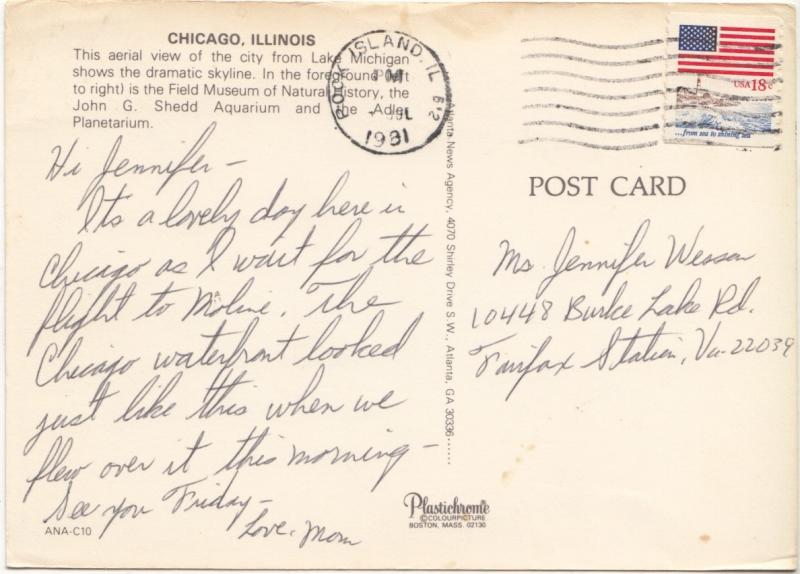 CHICAGO, ILLINOIS
This aerial view of the city from Lake Michigan
shows the dramatic skyline. In the foreground (left
to right) is the Field Museum of Natural History, the
John G. Shedd Aquarium and the Adler
Planetarium.
Hi Jennifer –
It's a lovely day here in
Chicago as I wait for the
flight to Moline. The
Chicago waterfront looked
just like this when we
flew over it this morning –
See you Friday –
Love, Mom
ANA-C10
ROCK ISLAND, IL
PM
JUL
1981
612
Atlanta News Agency, 4070 Shirley Drive S.W., Atlanta, GA 30336
USA 18c
...from sea to shining sea
POST CARD
Ms. Jennifer Wesson
10448 Burke Lake Rd.
Fairfax Station, Va - 22039
Plastichrome®
©COLOURPICTURE
BOSTON, MASS. 02130